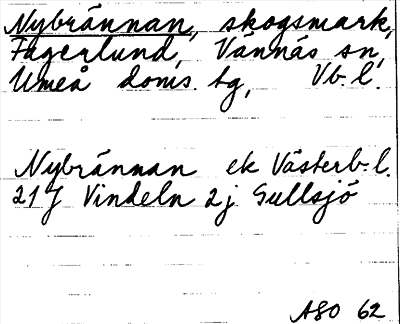 Nybrännan, skogsmark,
Fagerlund, Vännäs sn,
Umeå doms. tg, Vb. l.
Nybrännan ek Västerb. l.
21 J Vindeln 2 j Gullsjö
ASO 62